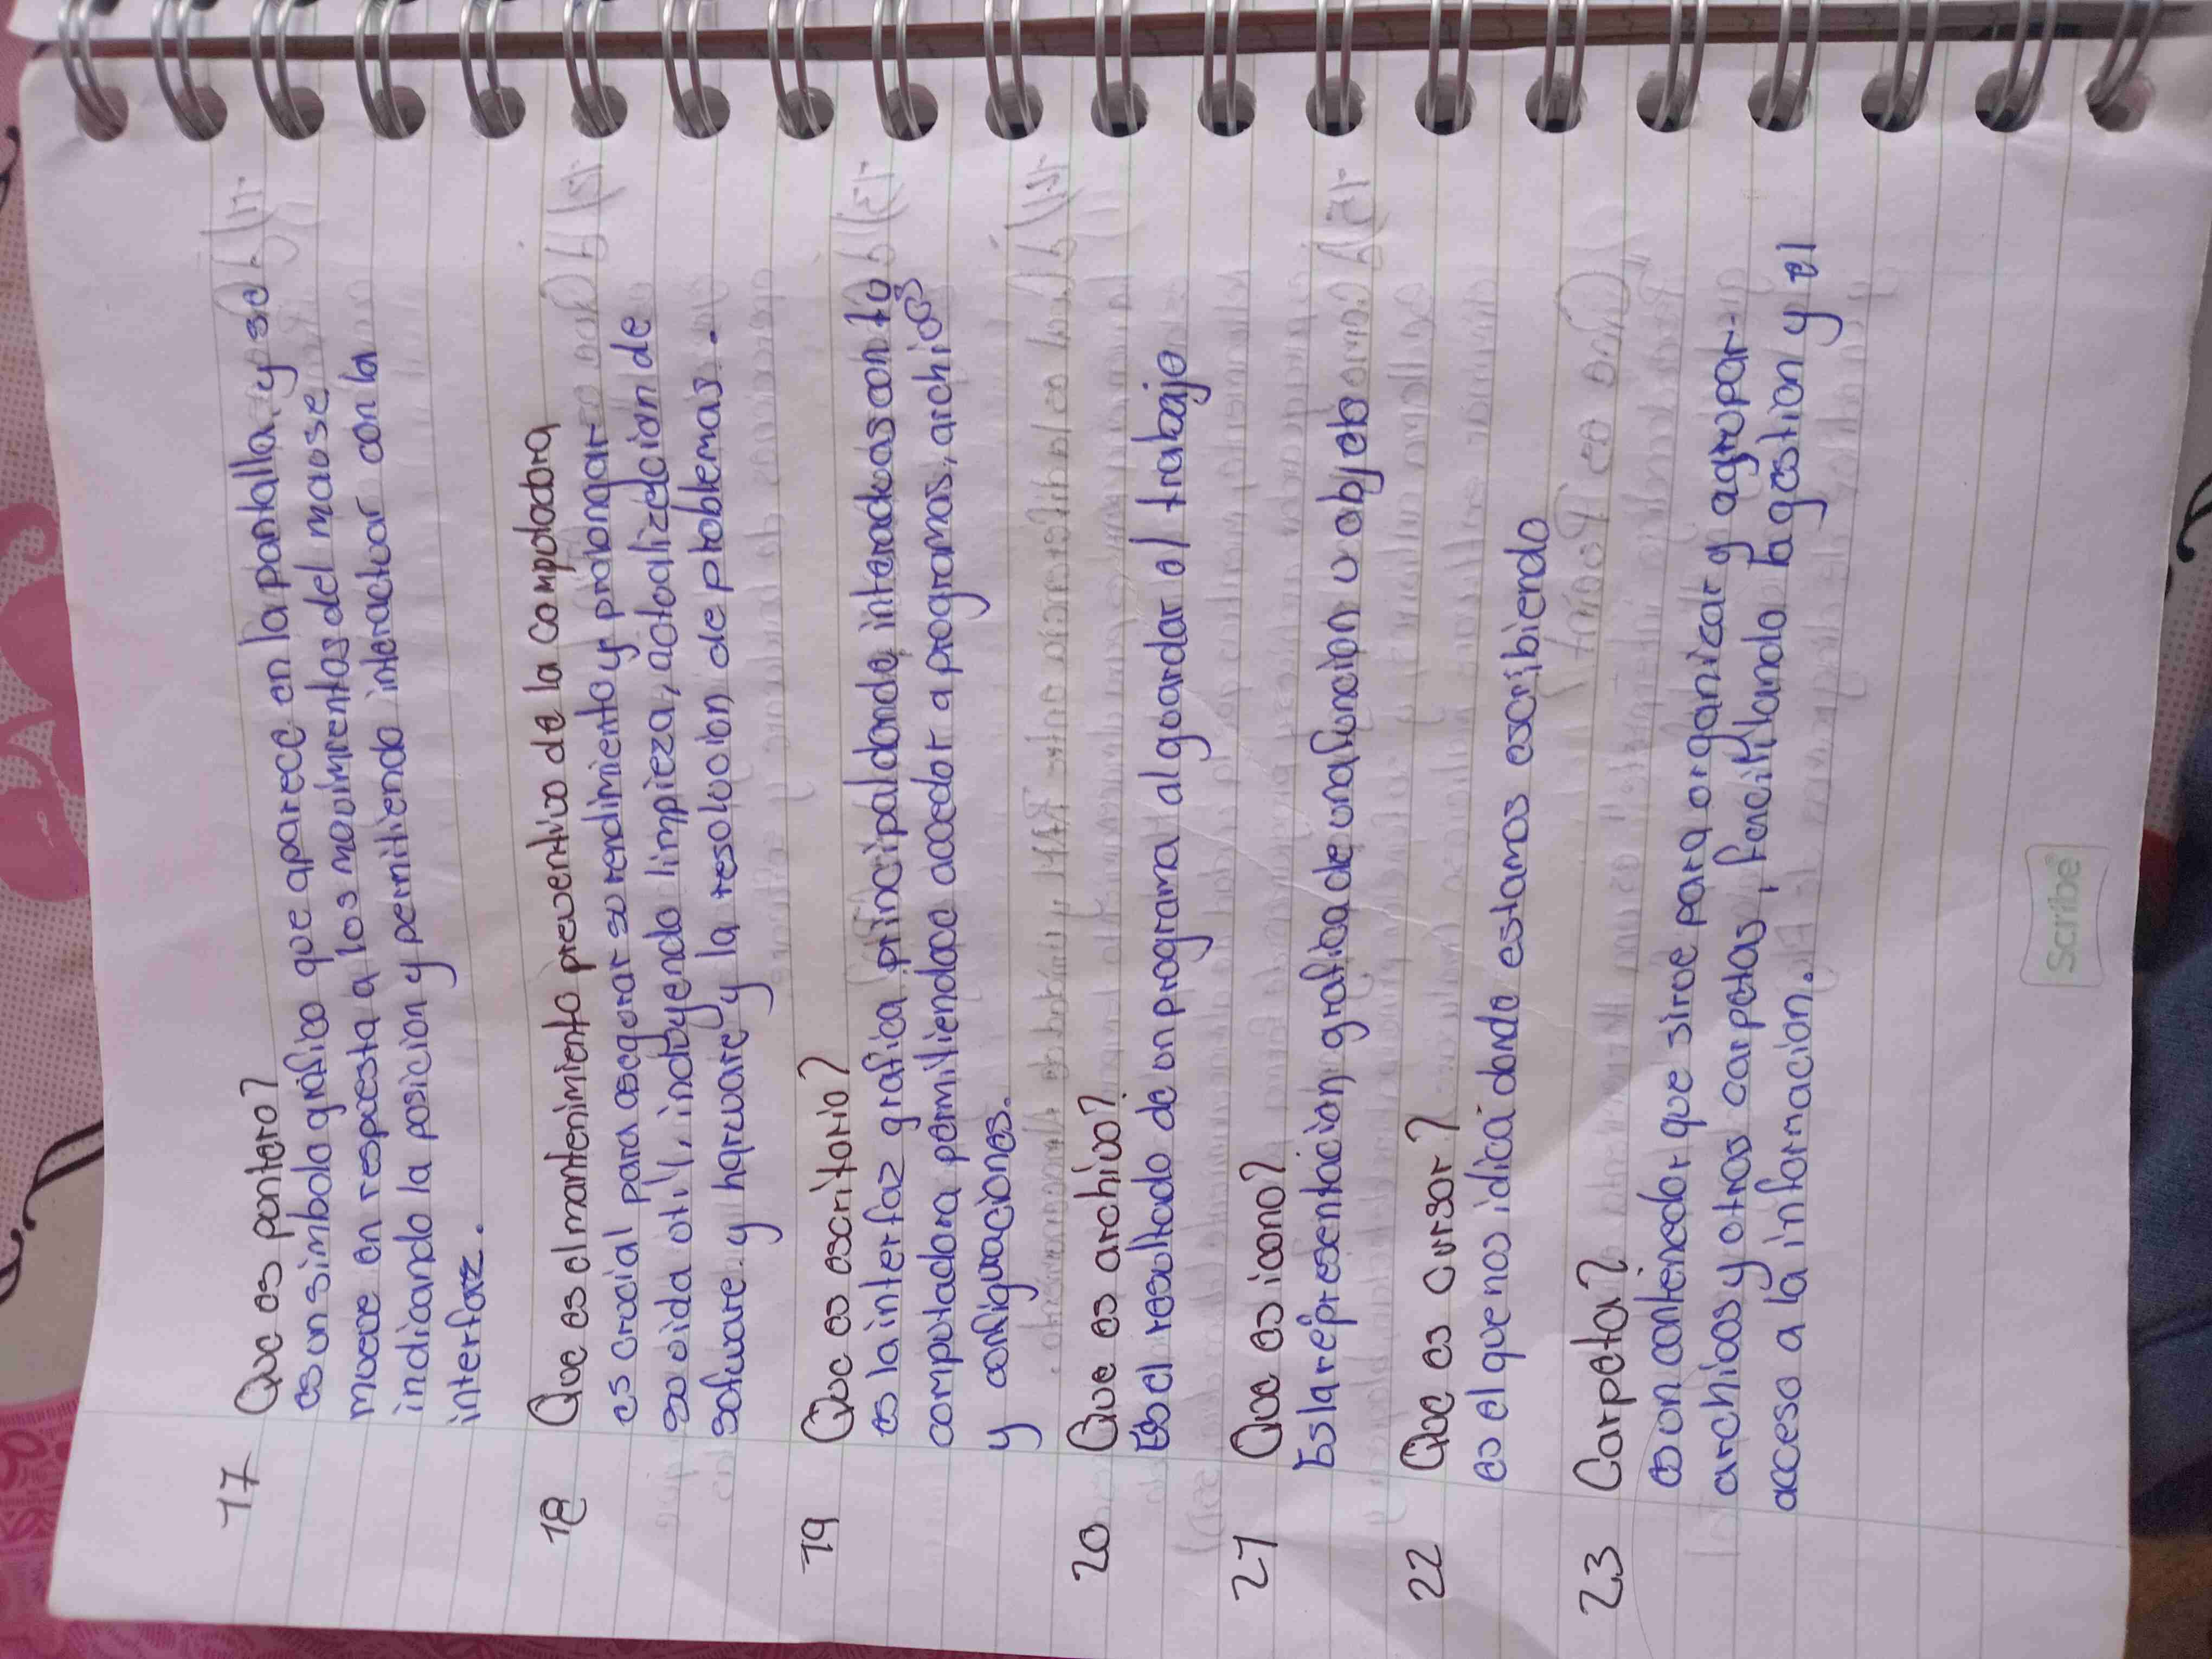 17 Que es pontero?
es un simbolo gráfico que aparece en la pantalla y se
mueve en respuesta a los movimientos del mause
indicando la posicion y permitiendo interactuar con la
interfaz.
18 Que es el mantenimiento preventivo de la computadora
es crucial para asegurar su rendimiento y prolongar
su vida util, incluyendo limpieza, actualizacion de
sofware y harware y la resolucion de problemas.
19 Que es escritorio?
es la interfaz grafica principal donde interactuas con tu
computadora permitiendote acceder a programas, archivos
y configuaciones.
20 Que es archivo?
Es el resultado de un programa al guardar el trabajo
21 Que es icono?
Es la representacion grafica de una funcion u objeto
22 Que es cursor?
es el que nos idica donde estamos escribiendo
23 Carpeta?
es un contenedor que sirve para organizar y agrupar
archivos y otras carpetas, facilitando la gestion y el
acceso a la informacion.
Scribe